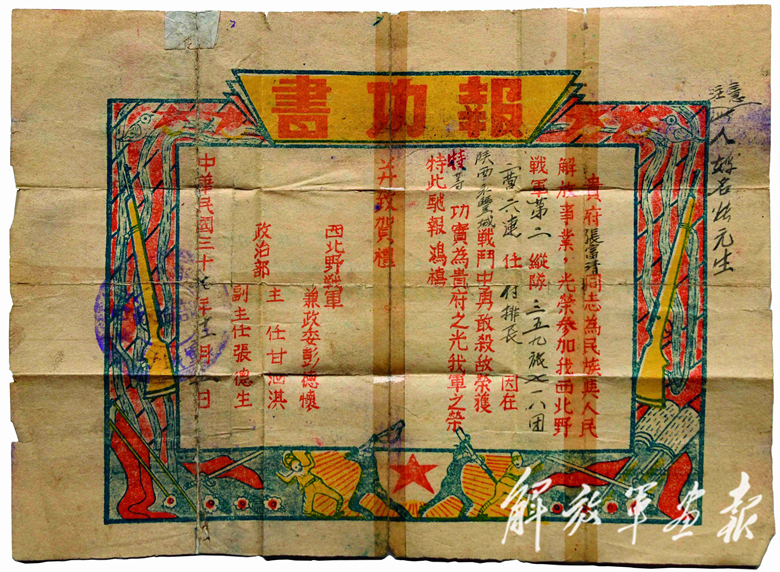 報功書
注意
人 名 元生
貴府張富清同志為民族與人民
解放事業，光榮參加我西北野
戰軍第二縱隊三五九旅七一八团
二营六連任付排長因在
陝西永豐城戰鬥中勇敢殺敵榮獲
特等功實為貴府之光我軍之榮
特此馳報鴻禧
并致賀禮
西北野戰軍
兼政委彭德懷
政治部
主任甘泗淇
副主任張德生
中華民國三十七年 月 日
解放军画报